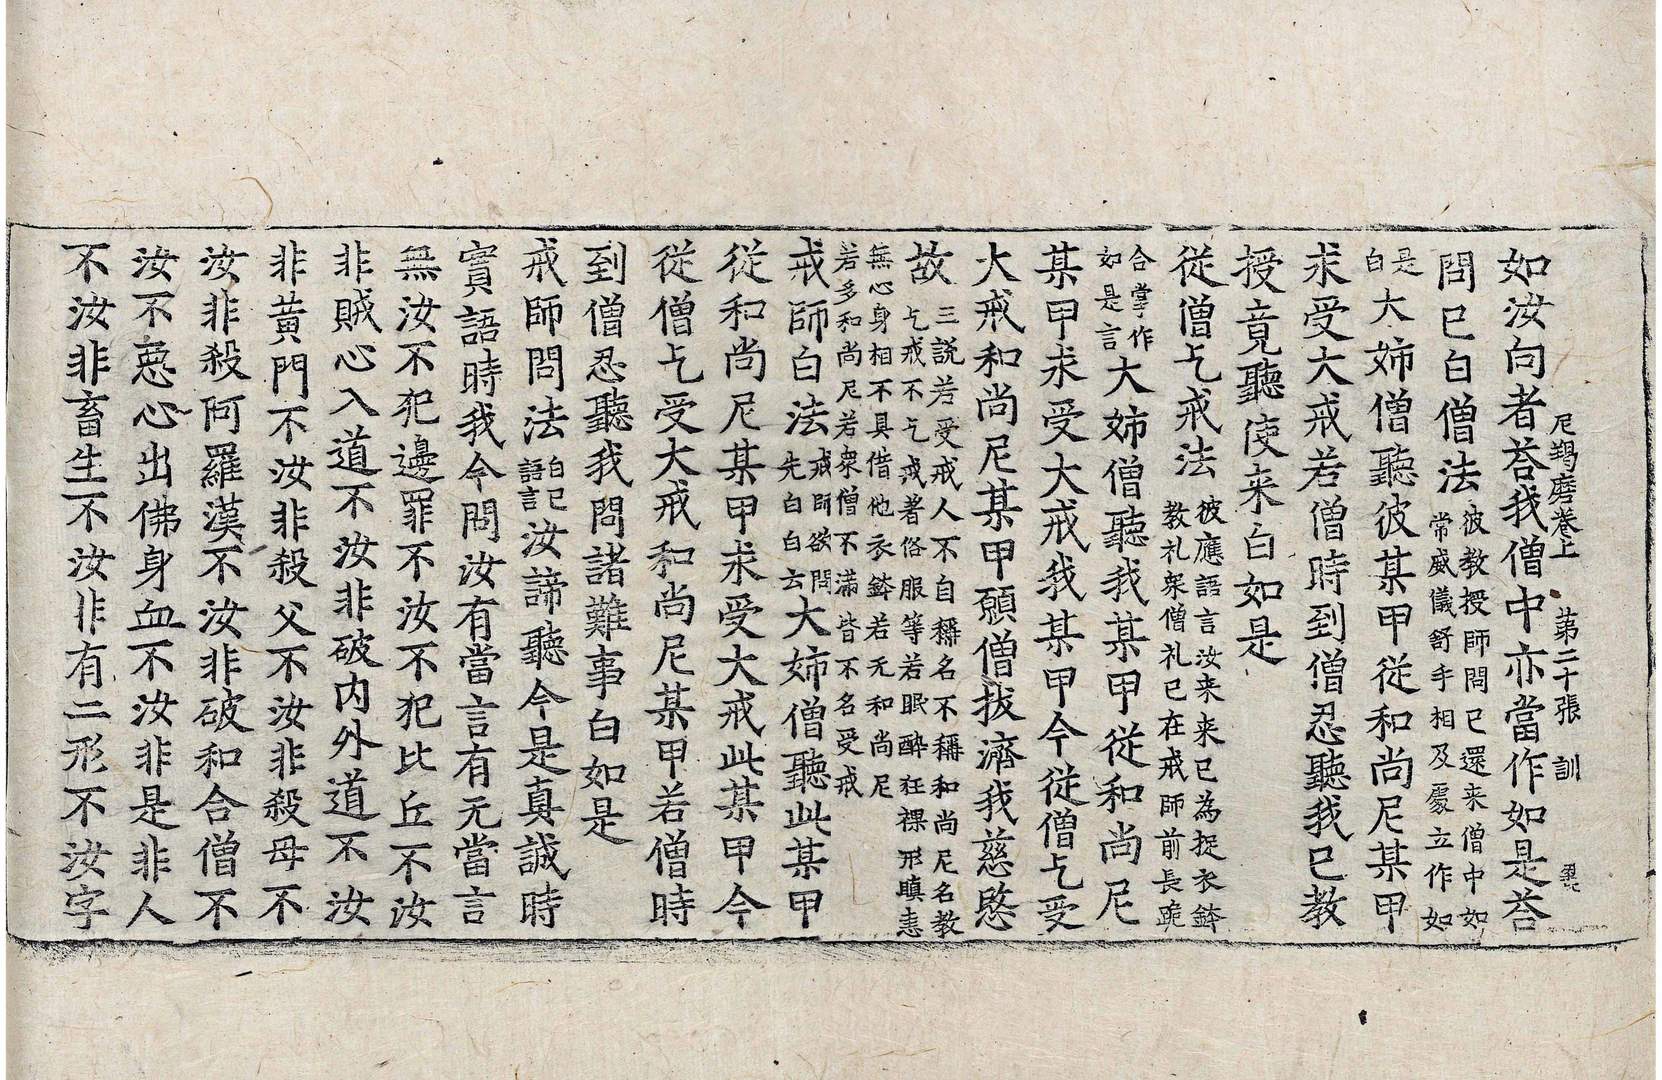 尼羯磨卷上 第二十張 訓
如汝向者荅我僧中亦當作如是荅
問已白僧法彼教授師問已還来僧中如常威儀舒手相及處立作如
是白大姉僧聽彼某甲從和尚尼某甲
求受大戒若僧時到僧忍聽我已教
授竟聽使来白如是
從僧乞戒法彼應語言汝来来已為捉衣鉢教礼衆僧礼已在戒師前長跪
合掌作如是言大姉僧聽我某甲從和尚尼
某甲求受大戒我某甲今從僧乞受
大戒和尚尼某甲願僧拔濟我慈愍
故三說若受戒人不自稱名不稱和尚尼名教乞戒不乞戒者俗服等若眠醉狂裸形瞋恚
無心身相不具借他衣鉢若无和尚尼若多和尚尼若衆僧不滿皆不名受戒
戒師白法戒師欲問先白白云大姉僧聽此某甲
從和尚尼某甲求受大戒此某甲今
從僧乞受大戒和尚尼某甲若僧時
到僧忍聽我問諸難事白如是
戒師問法白已語言汝諦聽今是真誠時
實語時我今問汝有當言有无當言
無汝不犯邊罪不汝不犯比丘不汝
非賊心入道不汝非破内外道不汝
非黃門不汝非殺父不汝非殺母不
汝非殺阿羅漢不汝非破和合僧不
汝不惡心出佛身血不汝非是非人
不汝非畜生不汝非有二形不汝字